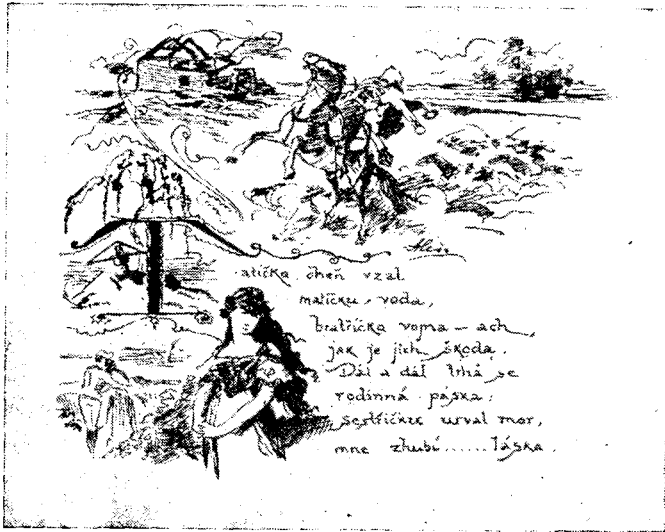 Aleš
Tatíčka oheň vzal
matičku voda,
bratříčka vojna — ach,
jak je jich škoda.
Dál a dál trhá se
rodinná páska:
sestřičku urval mor,
mne zhubí......láska.